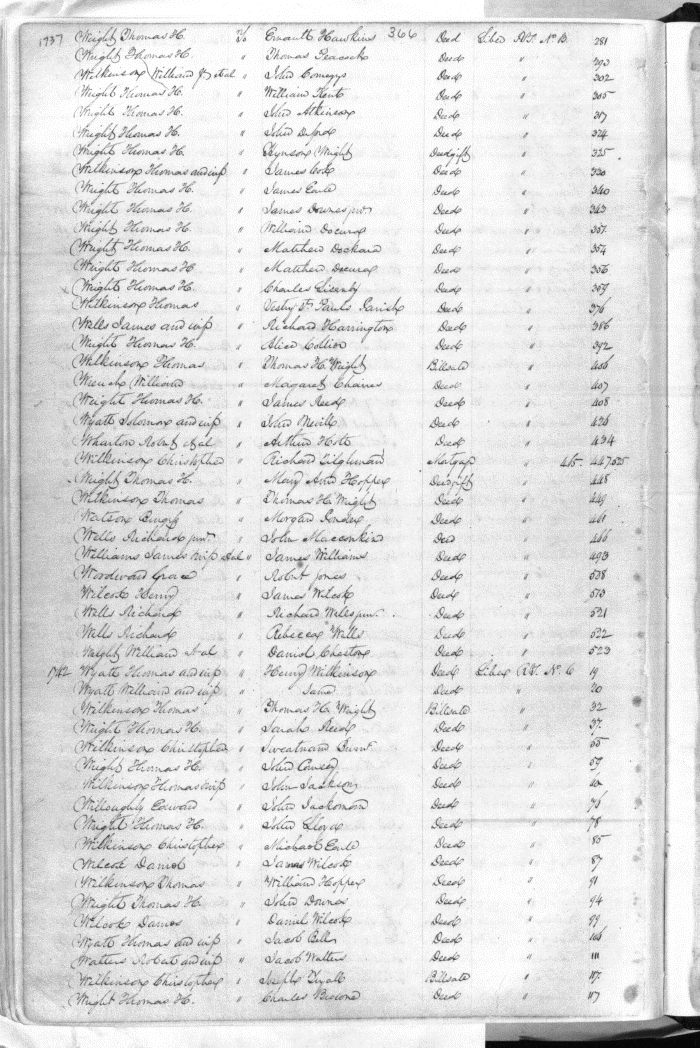 366
1737 Wright Thomas H. To Ernault Hawkins Deed Liber R.T. No B. 281
Wright Thomas H. " Thomas Peacock Deed " 293
Wilkinson William Jr et al " John Comegys Deed " 302
Wright Thomas H. " William Kent Deed " 305
Wright Thomas H. " John Atkinson Deed " 317
Wright Thomas H. " John Deford Deed " 324
Wright Thomas H. " Hynson Wright Deedgift " 325
Wilkinson Thomas and wife " James Deed " 330
Wright Thomas H. " James Earle Deed " 340
Wright Thomas H. " James Downes junr Deed " 343
Wright Thomas H. " William Deed " 351
Wright Thomas H. " Matthew Dockard Deed " 354
Wright Thomas H " Matthew Deed " 356
Wright Thomas H. " Charles Deed " 359
Wilkinson Thomas " Vestry St Pauls Parish Deed " 376
Wells James and wife " Richard Harrington Deed " 386
Wright Thomas H. " Alice Collier Deed " 392
Wilkinson Thomas " Thomas H. Wright Billsale " 406
William " Margaret Chaires Deed " 407
Wright Thomas H. " James Reed Deed " 408
Wyatt Solomon and wife " John Nevill Deed " 426
Wharton Robert et al " Arthur Holt Deed " 434
Wilkinson Christopher " Richard Tilghman Mortgage " 415. 447.525
Wright Thomas H. " Mary Ann Hopper Deedgift " 448
Wilkinson Thomas " Thomas H. Wright Deed " 449
Watson " Morgan Deed " 461
Wells Richard junr " John Macconkin Deed " 466
Williams James & wife et al " James Williams Deed " 493
Woodward Grace " Robert Jones Deed " 508
Wilcox Henry " James Wilcox Deed " 513
Wells Richard " Richard Wells junr. Deed " 521
Wells Richard " Rebecca Wells Deed " 522
Wright William et al " Daniel Deed " 523
1742 Wyatt Thomas and wife " Henry Wilkinson Deed Liber R.T. No C 19
Wyatt William and wife " Same Deed " 20
Wilkinson Thomas " Thomas H. Wright Billsale " 32
Wright Thomas H. " Sarah Reed Deed " 37.
Wilkinson Christopher " Sweatnam Burn Deed " 55
Wright Thomas H. " John Deed " 59
Wilkinson Thomas & wife " John Jackson Deed " 60
Willoughby Edward " John Jackson Deed " 76
Wright Thomas H. " John Lloyd Deed " 78
Wilkinson Christopher " Michael Earle Deed " 85
Wilcox Daniel " James Wilcox Deed " 87
Wilkinson Thomas " William Hopper Deed " 91
Wright Thomas H. " John Downes Deed " 94
Wilcox James " Daniel Wilcox Deed " 99
Wyatt Thomas and wife " Jacob Bell Deed " 106
Walters Robert and wife " Jacob Walters Deed " 111
Wilkinson Christopher " Joseph Wyatt Billsale " 117.
Wright Thomas H. " Charles Deed " 117